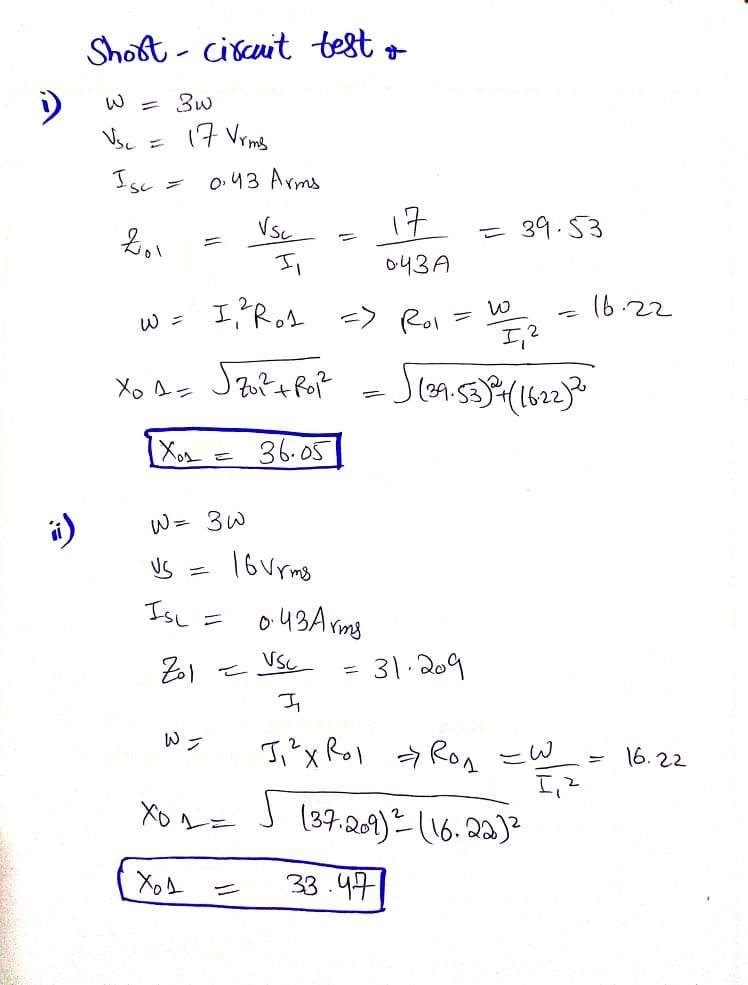 Short - circuit test
i) W = 3W
Vsc = 17 Vrms
Isc = 0.43 Arms
Z01 = Vsc / I1 = 17 / 0.43A = 39.53
W = I1²R01 => R01 = W / I1² = 16.22
X01 = √Z01² + R01² = √(39.53)² + (16.22)²
X01 = 36.05
ii) W = 3W
Vs = 16Vrms
Isc = 0.43Arms
Z01 = Vsc / I1 = 31.209
W = I1² x R01 ⇒ R01 = W / I1² = 16.22
X01 = √(37.209)² - (16.22)²
X01 = 33.47